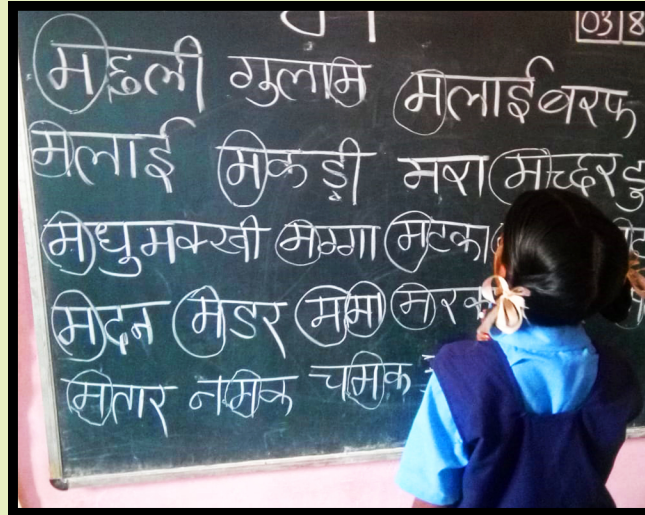 03 8
मछली गुलाम मलाईबरफ
मलाई मकड़ी मरा मच्छर
मधुमक्खी मग्गा मटका
मदन मडर मामा
मतार नमक चमक